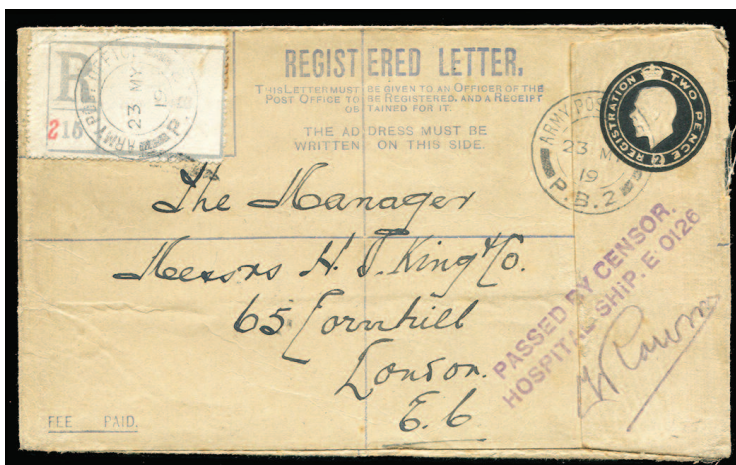 REGISTERED LETTER.
THIS LETTER MUST BE GIVEN TO AN OFFICER OF THE
POST OFFICE TO BE REGISTERED, AND A RECEIPT
OBTAINED FOR IT.
THE ADDRESS MUST BE
WRITTEN ON THIS SIDE.
R
215
ARMY POST OFFICE
23 MY
19
P.
REGISTRATION TWO PENCE
2
ARMY POS
23 M
19
P.B.2
The Manager
Messrs H. S. King & Co.
65 Cornhill
London.
E.6
PASSED BY CENSOR.
HOSPITAL SHIP. E 0126
FEE PAID.